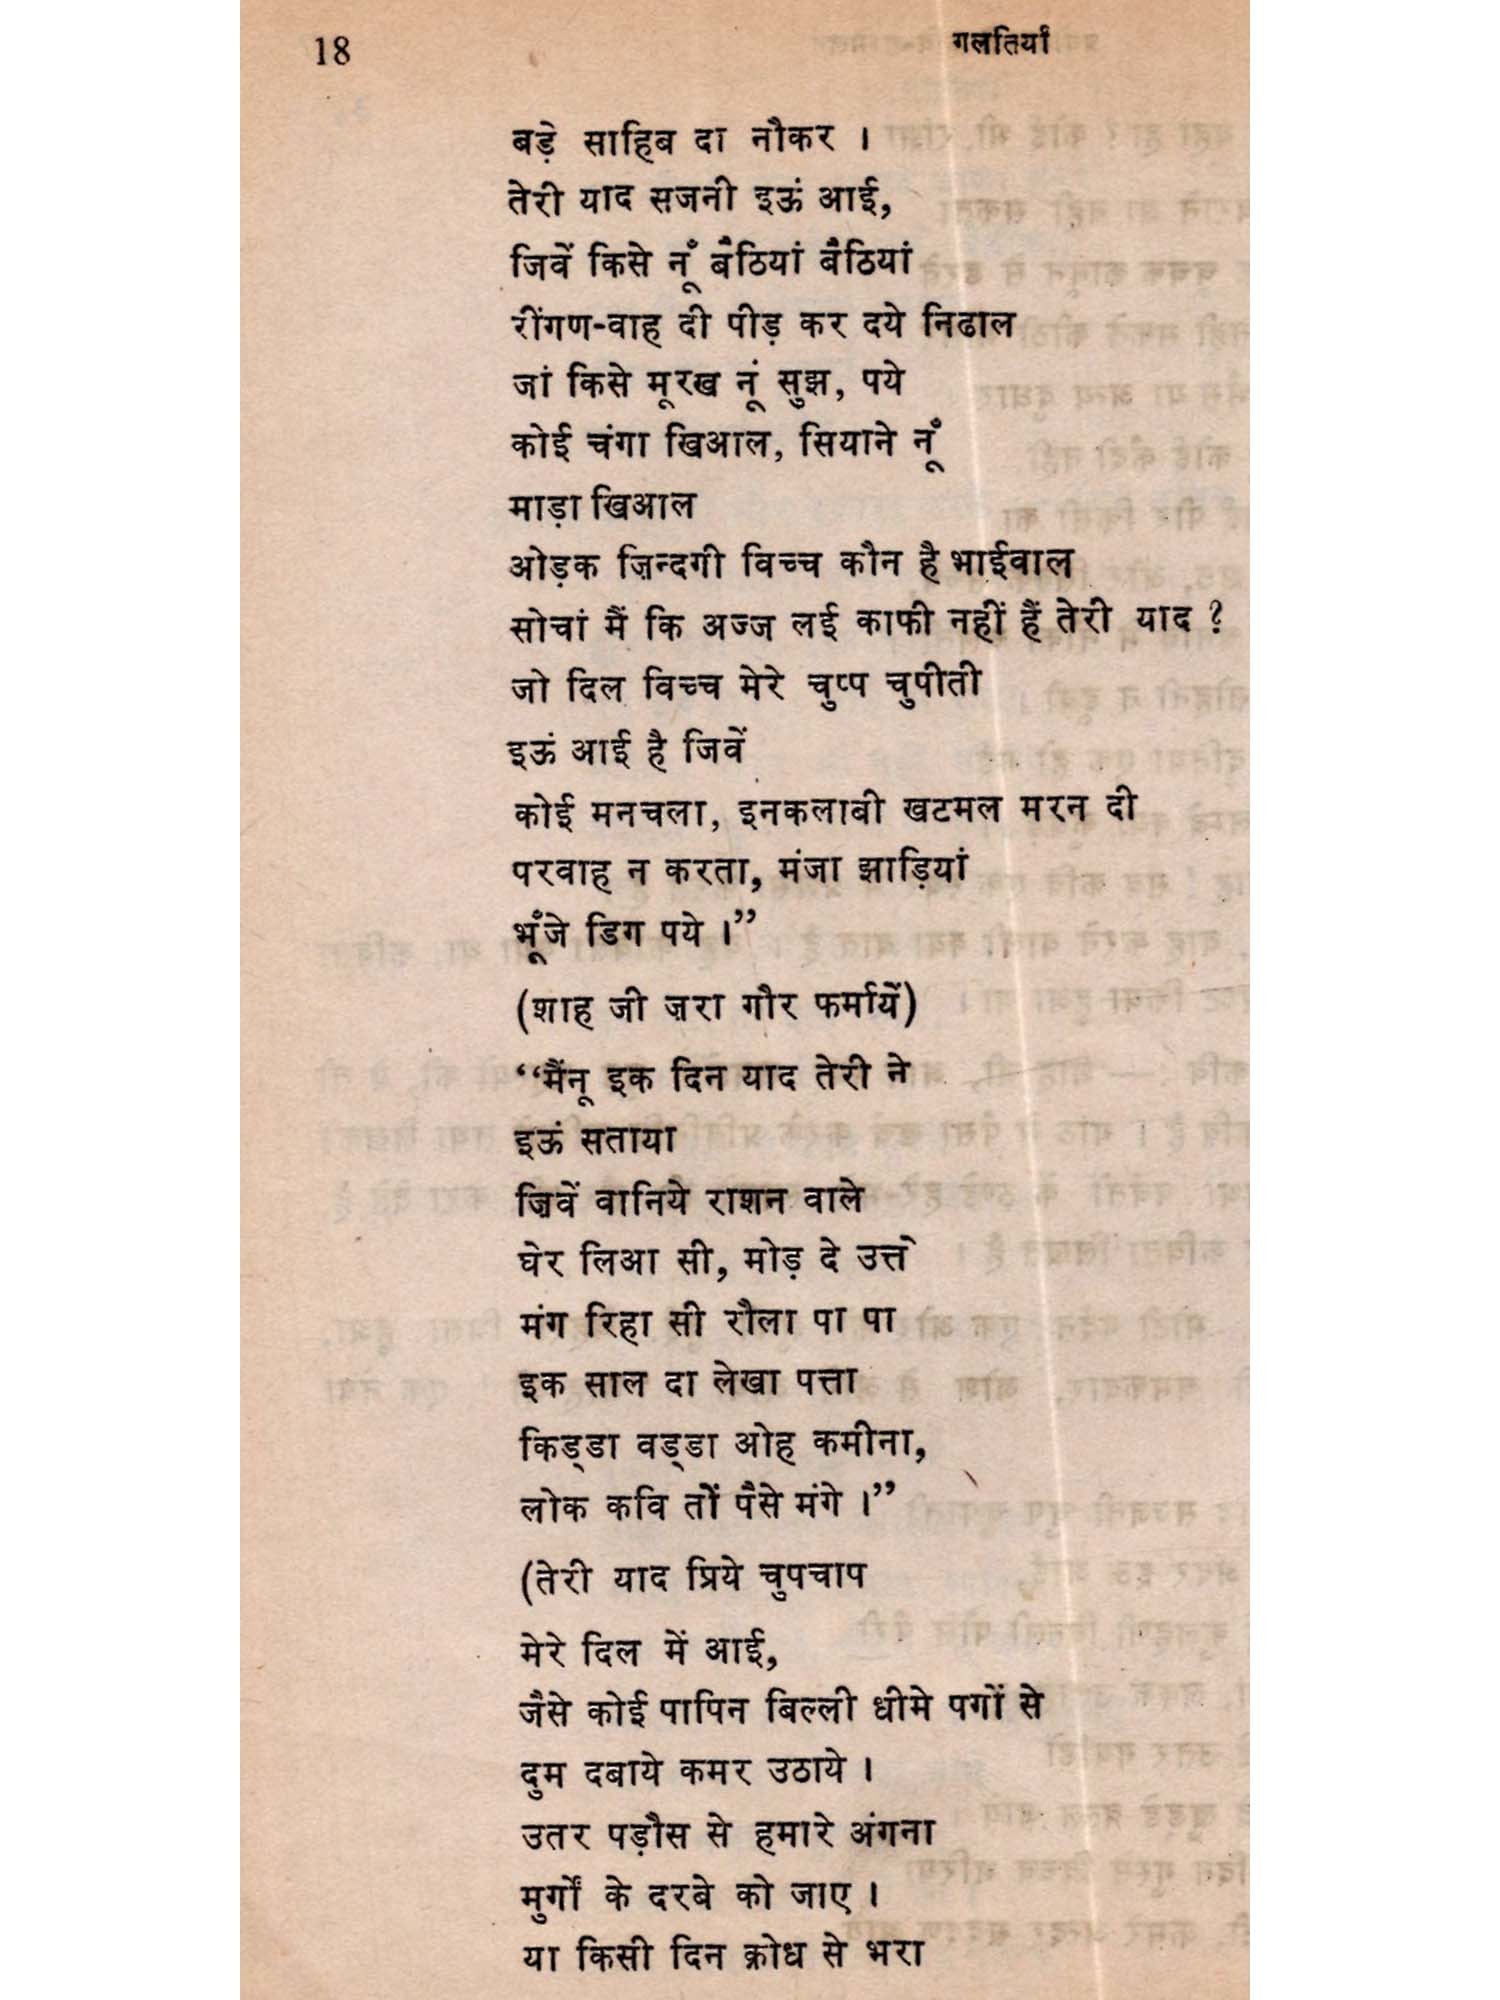 18
गलतियाँ
बड़े साहिब दा नौकर ।
तेरी याद सजनी इऊं आई,
जिवें किसे नूँ बैठियां बैठियां
रींगण-वाह दी पीड़ कर दये निढाल
जां किसे मूरख नूं सुझ, पये
कोई चंगा खिआल, सियाने नूँ
माड़ा खिआल
ओड़क ज़िन्दगी विच्च कौन है भाईवाल
सोचां मैं कि अज्ज लई काफी नहीं हैं तेरी याद ?
जो दिल विच्च मेरे चुप्प चुपीती
इऊं आई है जिवें
कोई मनचला, इनकलाबी खटमल मरन दी
परवाह न करता, मंजा झाड़ियां
भूँजे डिग पये ।”
(शाह जी ज़रा गौर फर्मायें)
“मैंनू इक दिन याद तेरी ने
इऊं सताया
जिवें वानिये राशन वाले
घेर लिआ सी, मोड़ दे उत्ते
मंग रिहा सी रौला पा पा
इक साल दा लेखा पत्ता
किड्डा वड्डा ओह कमीना,
लोक कवि तों पैसे मंगे ।”
(तेरी याद प्रिये चुपचाप
मेरे दिल में आई,
जैसे कोई पापिन बिल्ली धीमे पगों से
दुम दबाये कमर उठाये ।
उतर पड़ौस से हमारे अंगना
मुर्गों के दरबे को जाए ।
या किसी दिन क्रोध से भरा